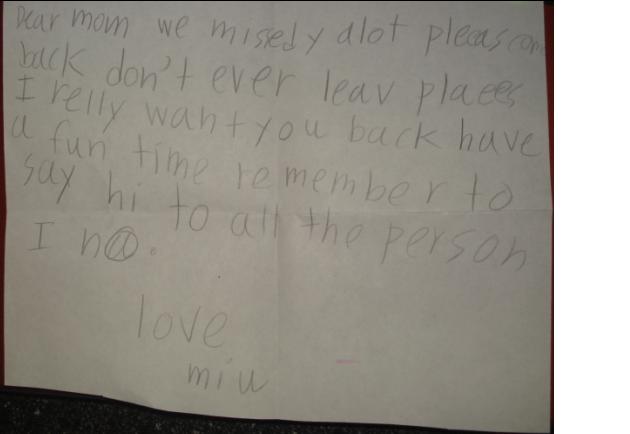 Dear mom we missed y alot pleeas com
back don't ever leav placees
I relly want you back have
a fun time remember to
say hi to all the person
I n@.
love
miu